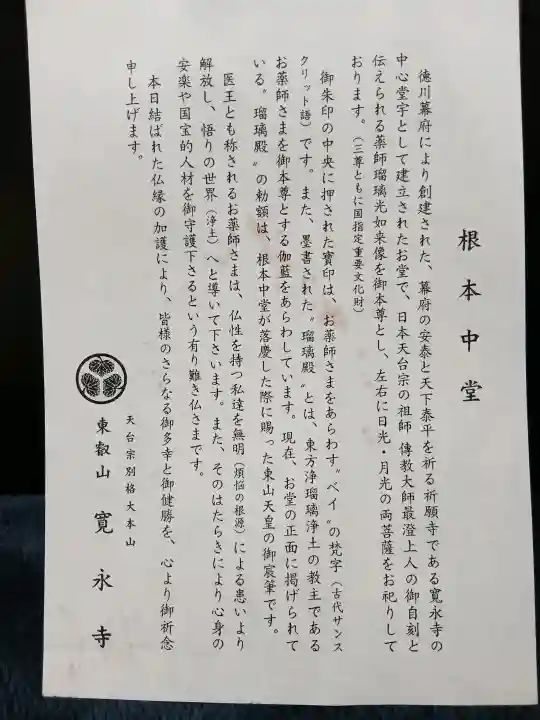 根本中堂
徳川幕府により創建された、幕府の安泰と天下泰平を祈る祈願寺である寛永寺の
中心堂宇として建立されたお堂で、日本天台宗の祖師 傳教大師最澄上人の御自刻と
伝えられる薬師瑠璃光如来像を御本尊とし、左右に日光・月光の両菩薩をお祀りして
おります。（三尊ともに国指定重要文化財）
御朱印の中央に押された寳印は、お薬師さまをあらわす〝ベイ〟の梵字（古代サンス
クリット語）です。また、墨書された〝瑠璃殿〟とは、東方浄瑠璃浄土の教主である
お薬師さまを御本尊とする伽藍をあらわしています。現在、お堂の正面に掲げられて
いる〝瑠璃殿〟の勅額は、根本中堂が落慶した際に賜った東山天皇の御宸筆です。
医王とも称されるお薬師さまは、仏性を持つ私達を無明（煩悩の根源）による患いより
解放し、悟りの世界（浄土）へと導いて下さいます。また、そのはたらきにより心身の
安楽や国宝的人材を御守護下さるという有り難き仏さまです。
本日結ばれた仏縁の加護により、皆様のさらなる御多幸と御健勝を、心より御祈念
申し上げます。
天台宗別格大本山
東叡山 寛永寺